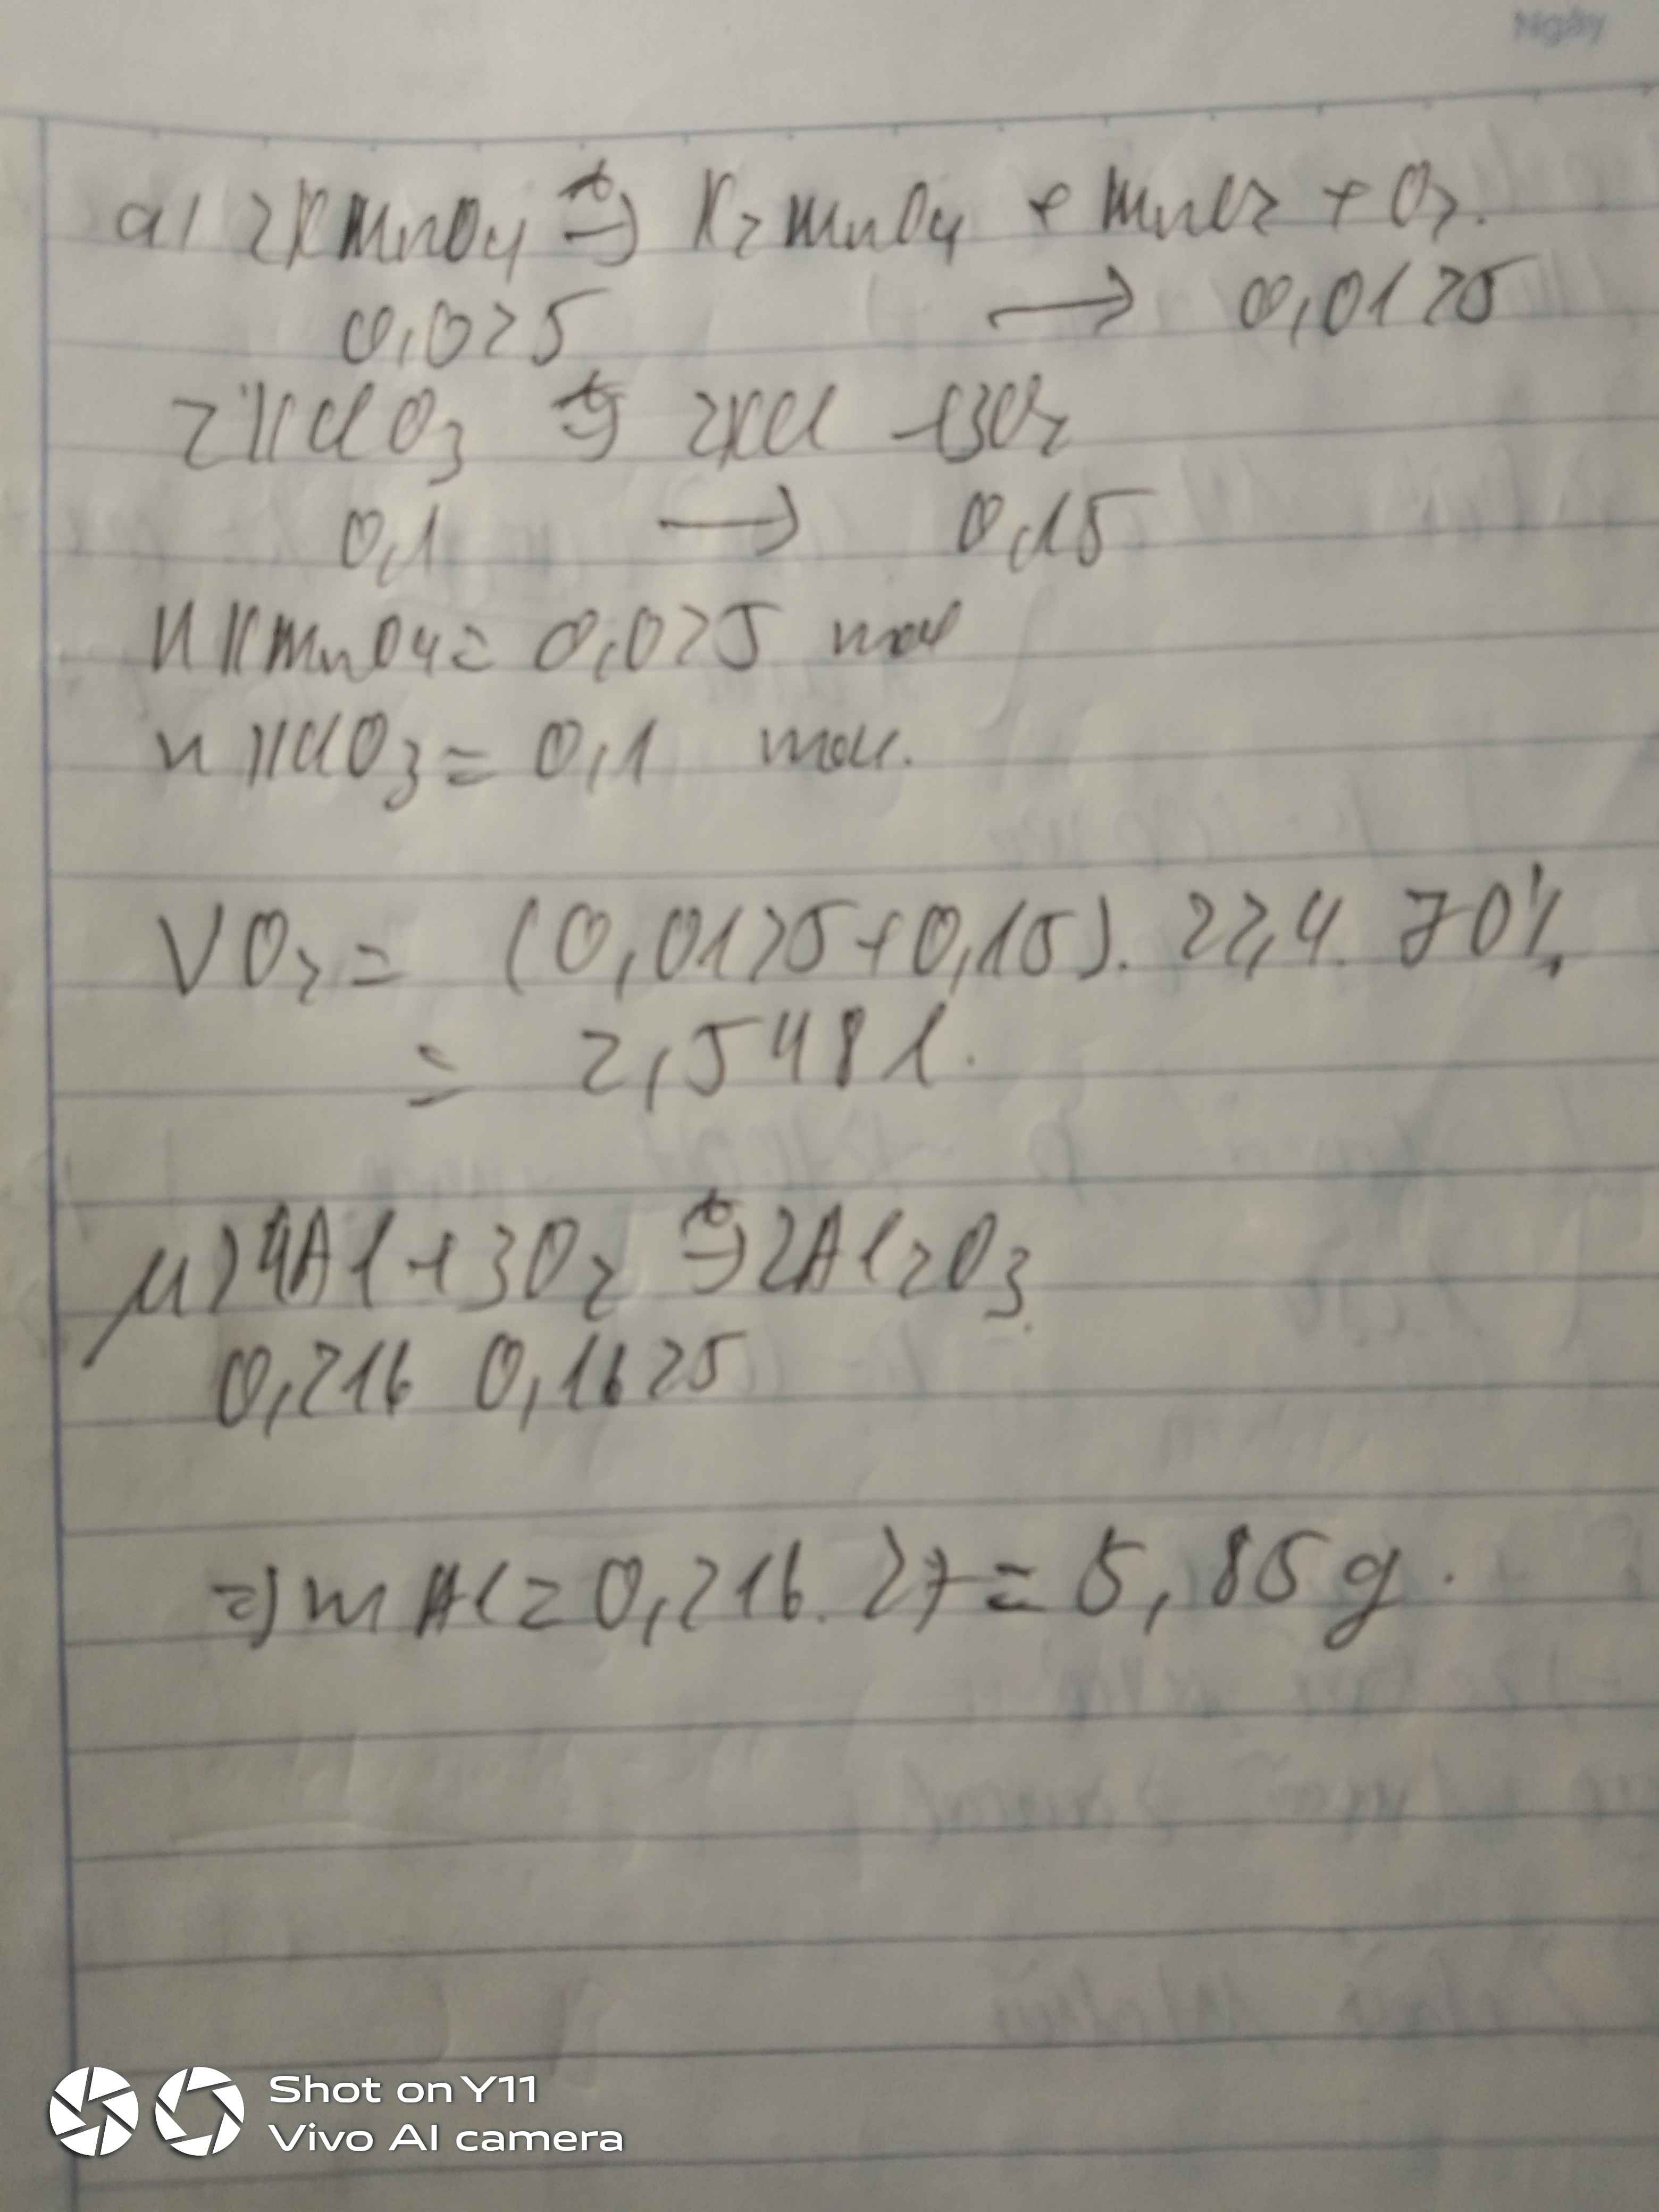 Ngày
a) 2KMnO4 t°→ K2MnO4 + MnO2 + O2.
0,025 → 0,0125
2KClO3 t°→ 2KCl + 3O2
0,1 → 0,15
nKMnO4 = 0,025 mol
nKClO3 = 0,1 mol.
VO2 = (0,0125 + 0,15). 22,4. 70%.
= 2,548 l.
4Al + 3O2 t°→ 2Al2O3
0,216 0,1625
=> mAl = 0,216. 27 = 5,85 g.
Shot on Y11
Vivo AI camera